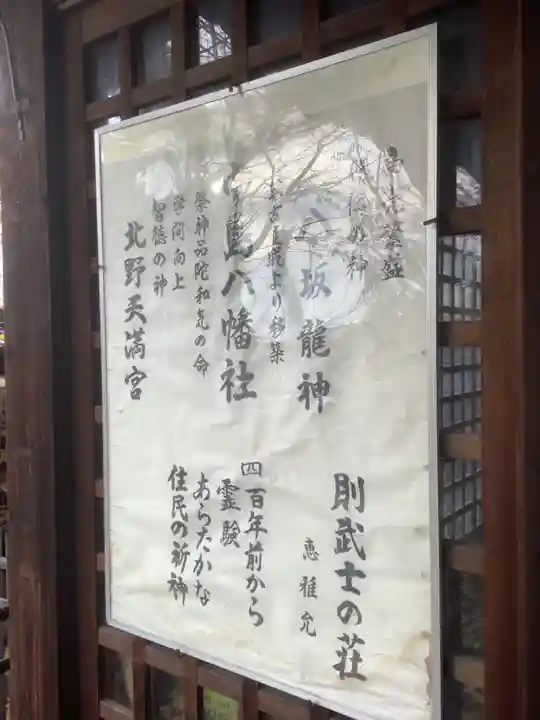 八坂龍神
より移築
島八幡社
祭神品陀和気の命
学問向上
智徳の神
北野天満宮
則武士の荘
恵雅允
四百年前から
霊験
あらたかな
住民の祈神